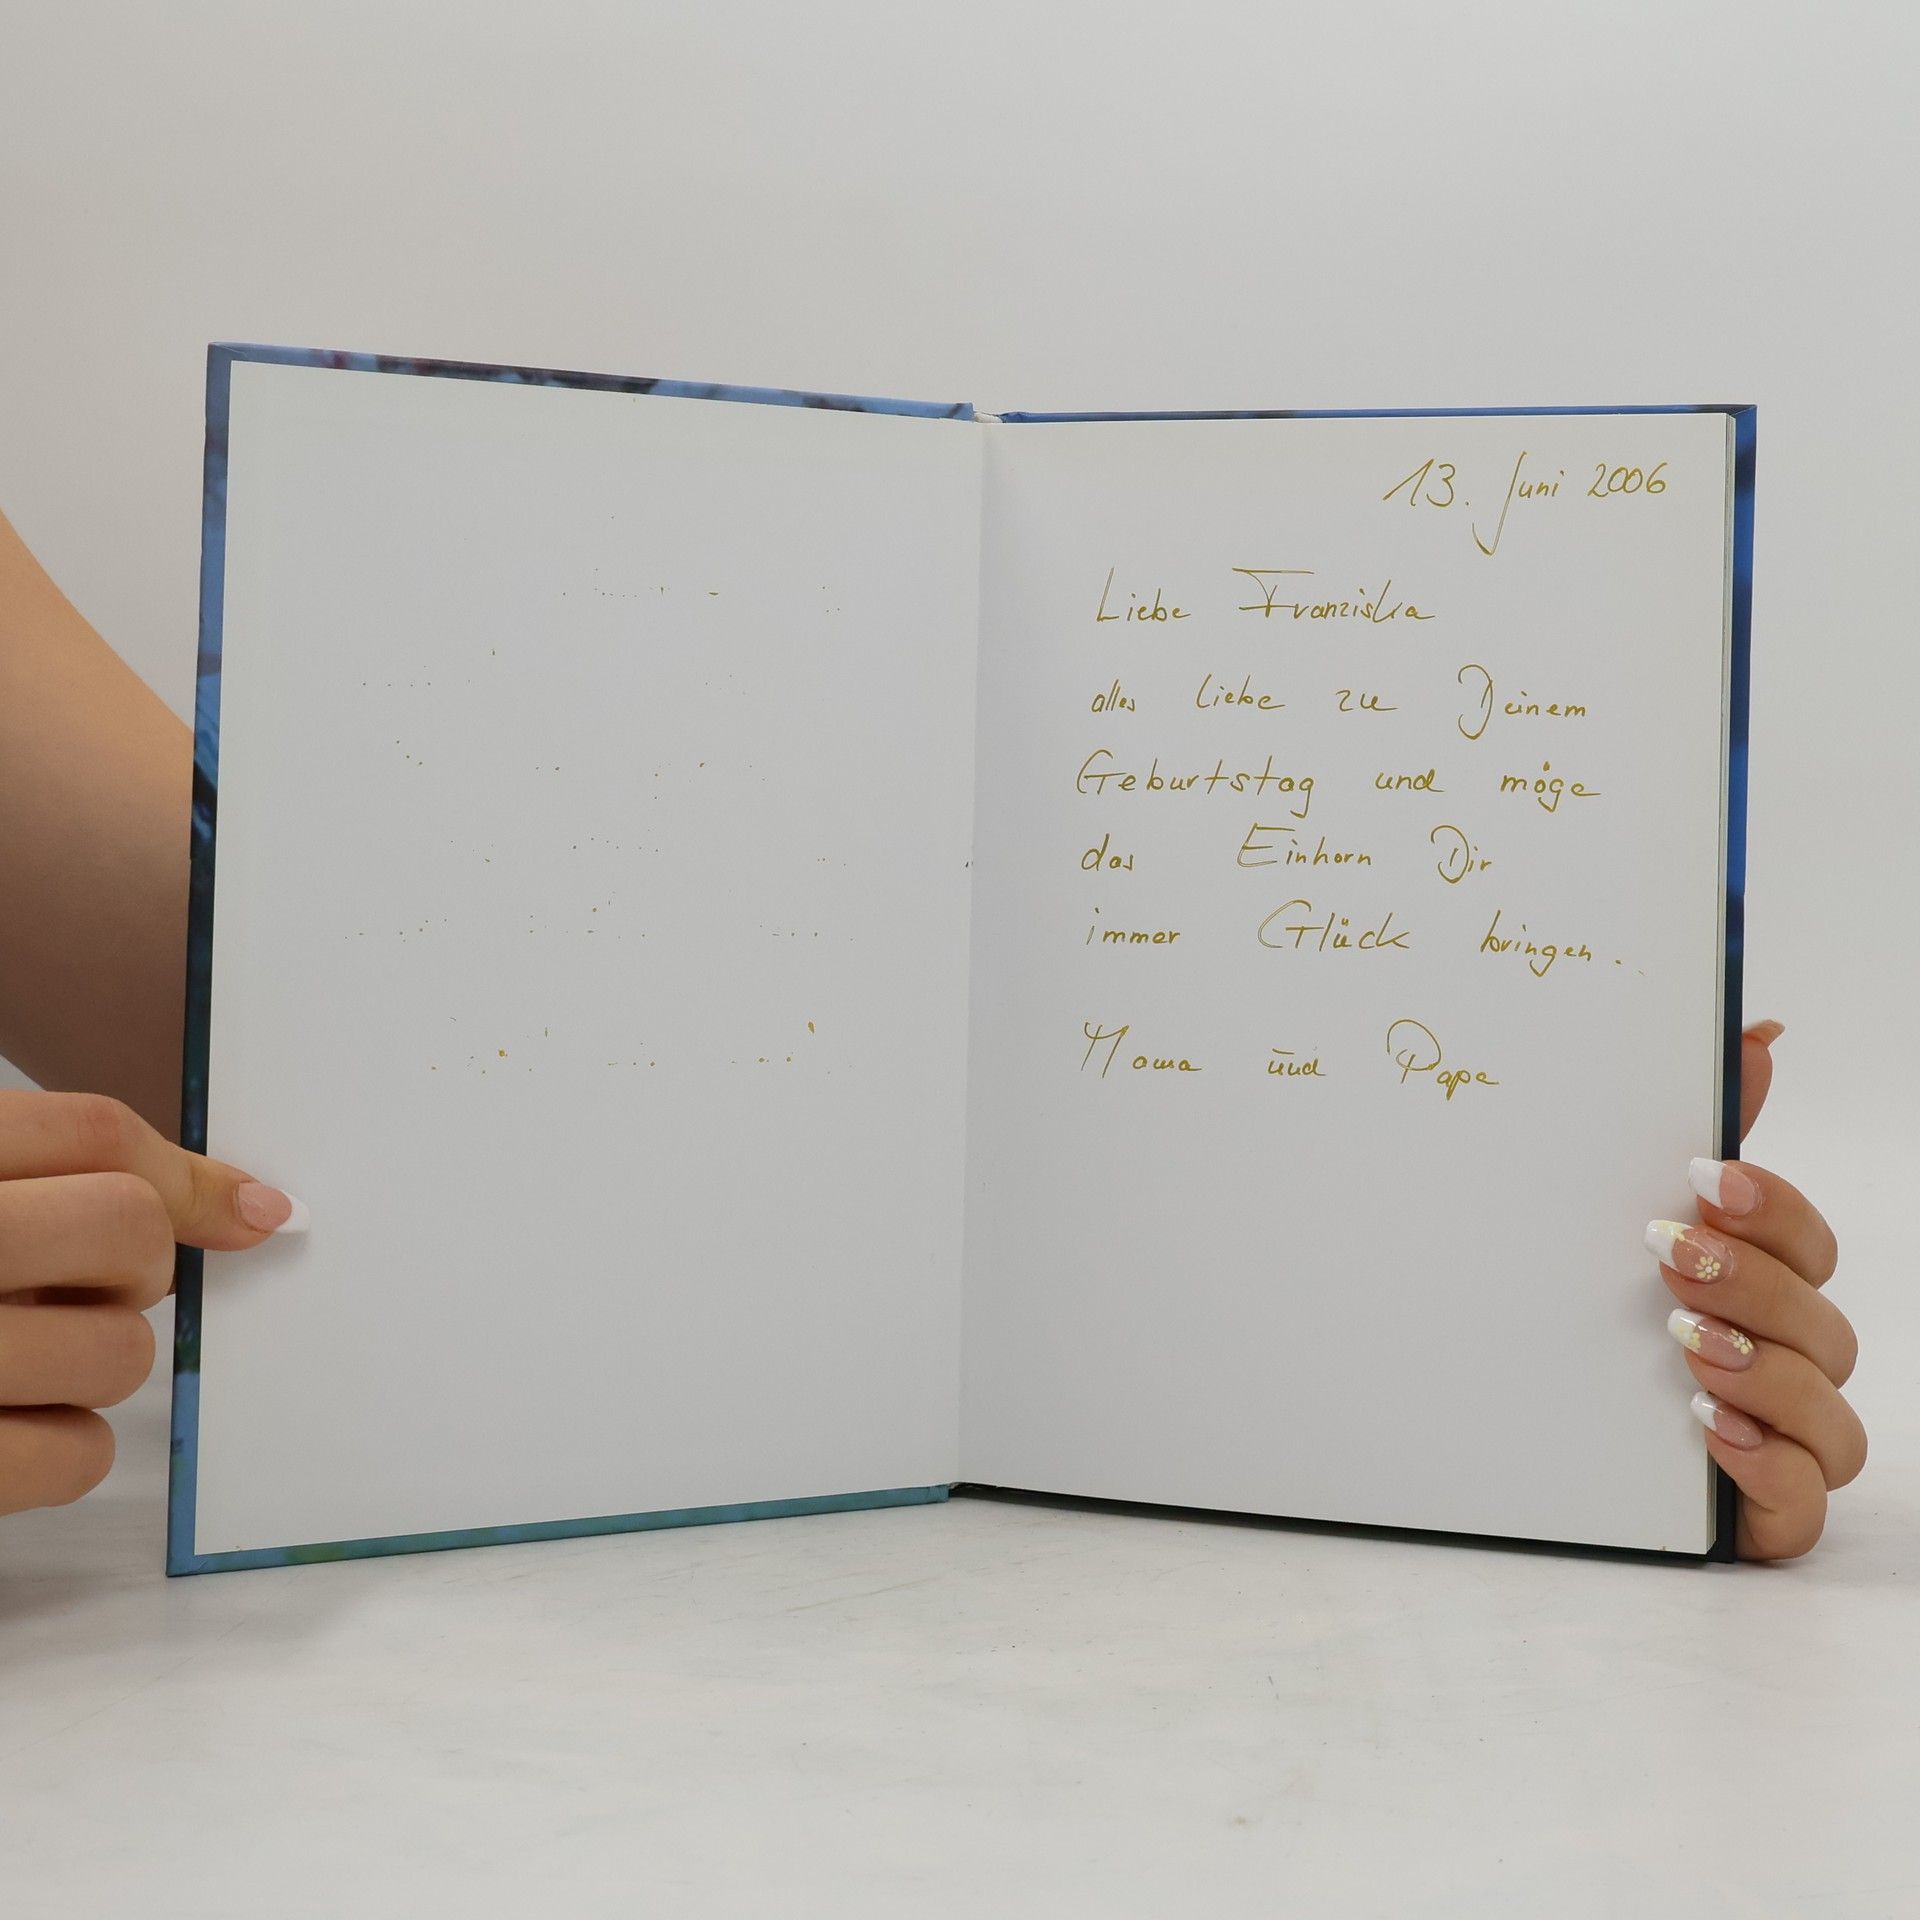 13. Juni 2006
Liebe Franziska
alles Liebe zu Deinem
Geburtstag und möge
das Einhorn Dir
immer Glück bringen..
Mama und Papa